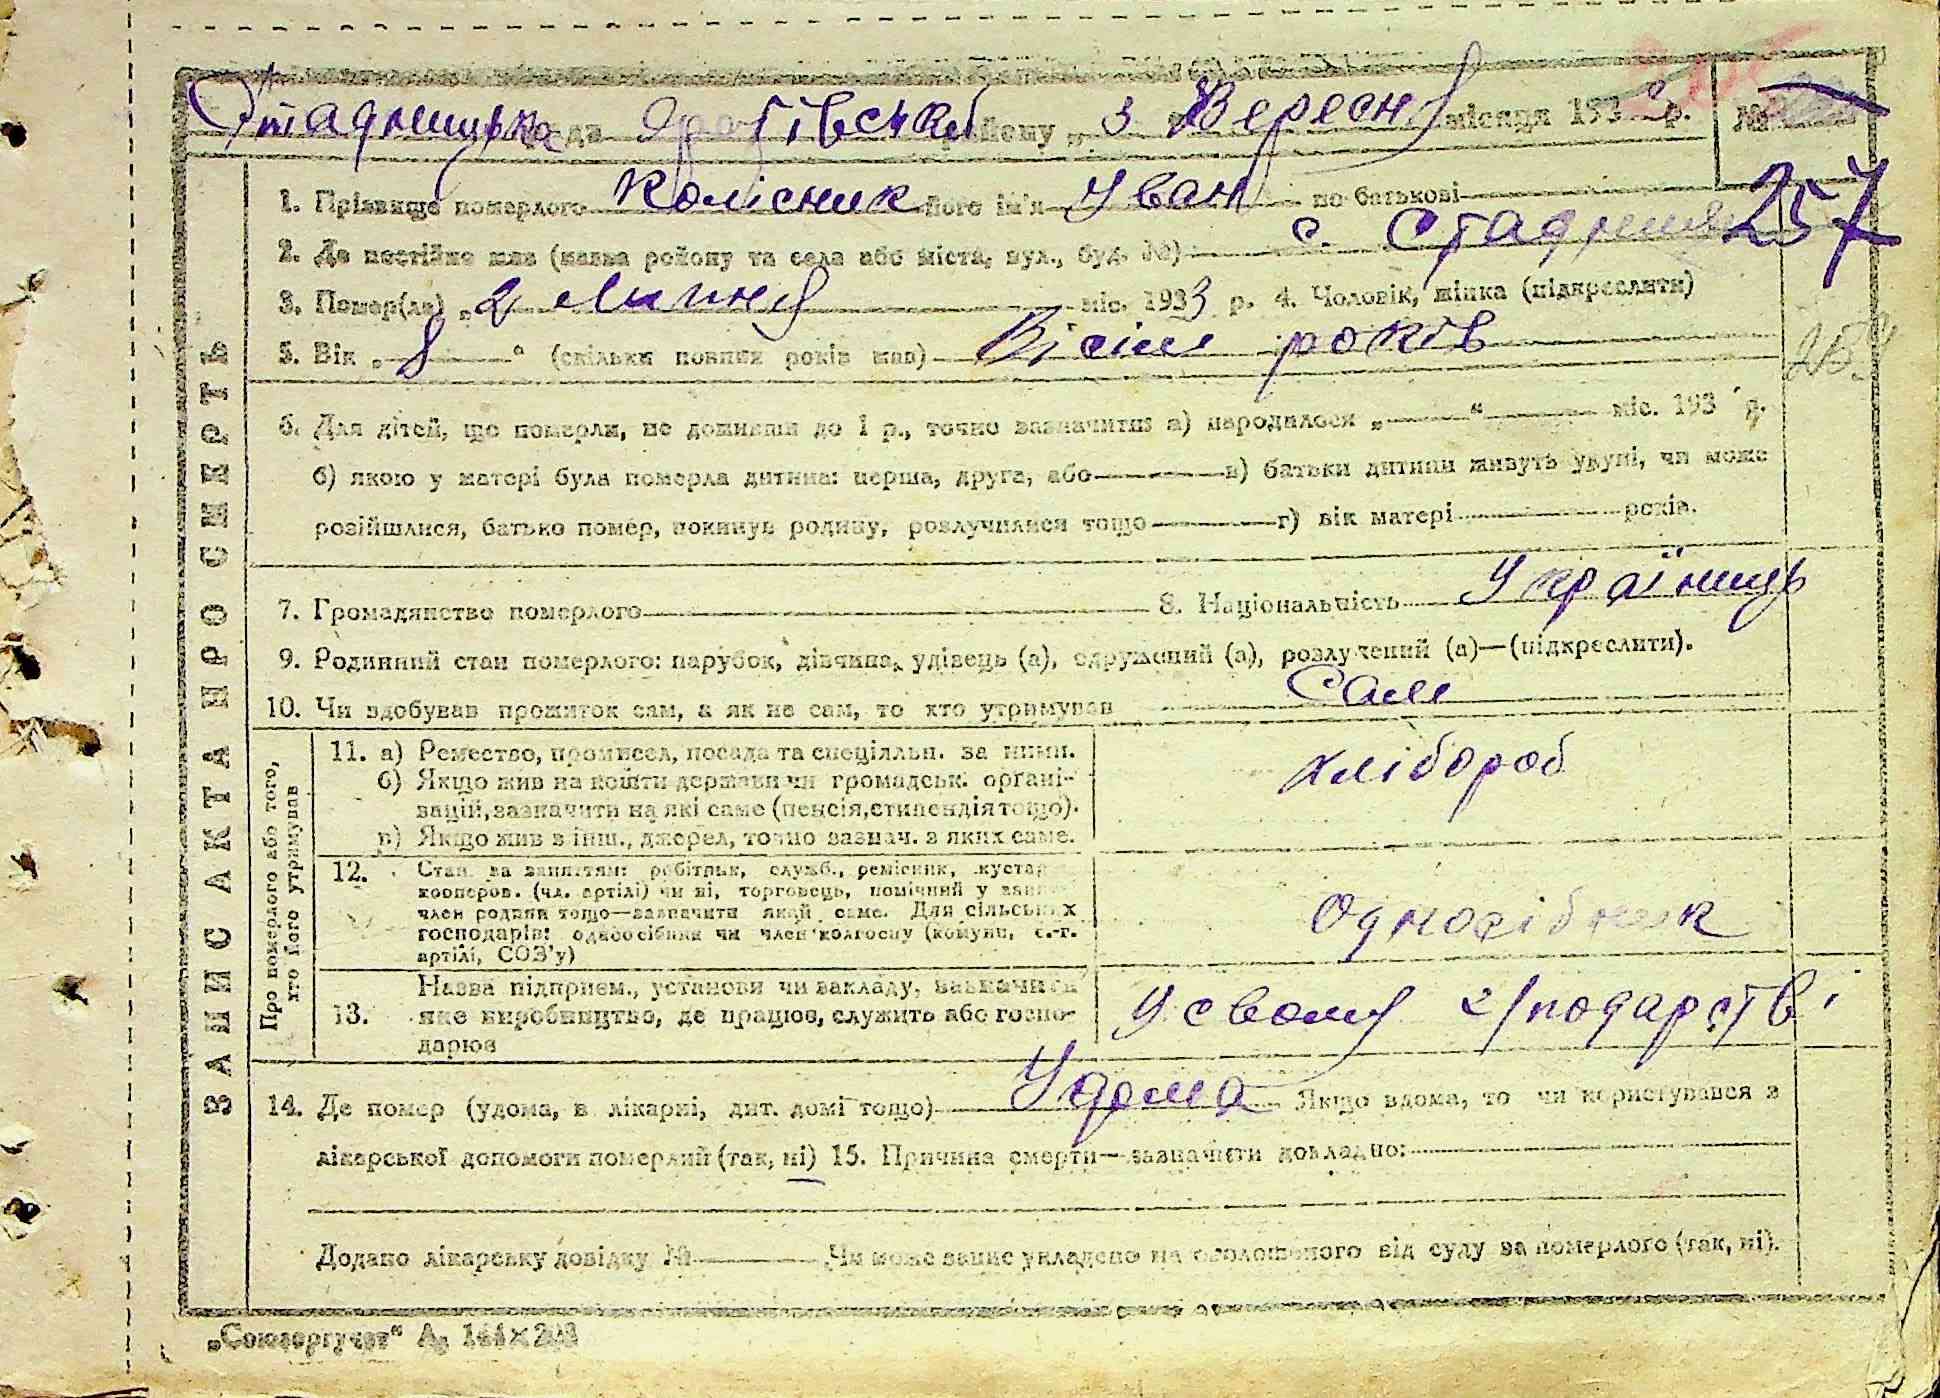 Стадницька рада Яротівської району „ 3 Вересня місяця 193 р. №
257
1. Прізвище померлого Колісник його ім'я Іван по батькові
2. Де постійно жив (назва району та села або міста, вул., буд. №) с. Стадниця
3. Помер(ла) „2 Липня міс. 1933 р. 4. Чоловік, жінка (підкреслити)
5. Вік „ 8 “ (скільки повних років мав) Вісім років
6. Для дітей, що померли, не доживши до 1 р., точно зазначити: а) народилося „ “ міс. 193 р.
б) якою у матері була померла дитина: перша, друга, або в) батьки дитини живуть укупі, чи може
розійшлися, батько помер, покинув родину, розлучилися тощо г) вік матері років.
7. Громадянство померлого 8. Національність Українець
9. Родинний стан померлого: парубок, дівчина, удівець (а), одружений (а), розлучений (а)—(підкреслити).
10. Чи здобував прожиток сам, а як не сам, то хто утримував Сам
ЗАПИС АКТА ПРО СМЕРТЬ
Про померлого або того, хто його утримував
11. а) Ремество, промисел, посада та спеціяльн. за ними.
б) Якщо жив на кошти держави чи громадськ. органі-
зацій, зазначити на які саме (пенсія, стипендія тощо).
в) Якщо жив з інш., джерел, точно зазнач. з яких саме.
хлібороб
12. Стан за заняттям: робітник, служб., ремісник, кустар
кооперов. (чл. артілі) чи ні, торговець, помічний у
член родини тощо—зазначити який саме. Для сільських
господарів: одноосібник чи член колгоспу (комуни, с.-г.
артілі, СОЗ'у)
Односібник
13. Назва підприєм., установи чи закладу, зазначити
яке виробництво, де працює, служить або госпо-
дарює
У свому г/подарстві
14. Де помер (удома, в лікарні, дит. домі тощо) Удома Якщо вдома, то чи користувався з
лікарської допомоги померлий (так, ні) 15. Причина смерти—зазначити докладно:
Додано лікарську довідку № Чи може запис укладено на оголошеного від суду за померлого (так, ні).
„Союзоргучет“